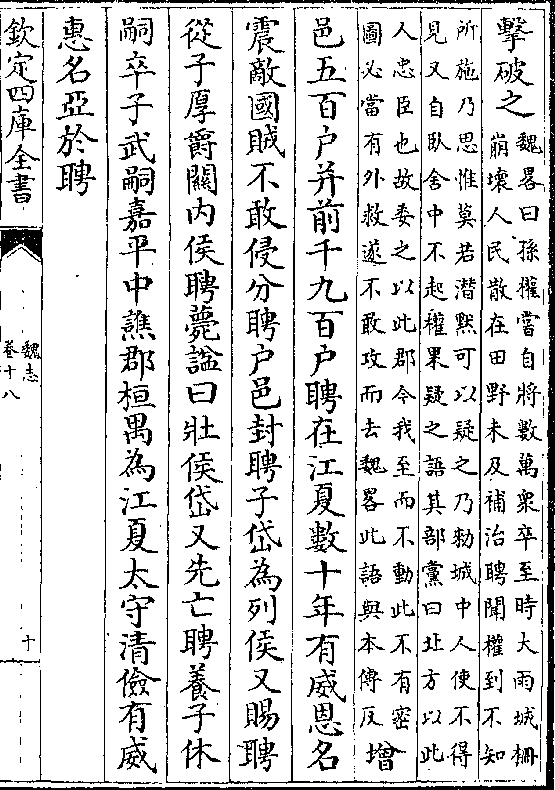 擊破之
魏畧曰孫權嘗自將數萬衆卒至時大雨城柵
崩壞人民散在田野未及補治聘聞權到不知
所施乃思惟莫若潛默可以疑之乃勅城中人使不得
見又自臥舍中不起權果疑之語其部黨曰北方以此
人忠臣也故委之以此郡今我至而不動此不有密
圖必當有外救遂不敢攻而去魏畧此語與本傳反
增
邑五百户并前千九百户聘在江夏數十年有威恩名
震敵國賊不敢侵分聘户邑封聘子岱為列侯又賜聘
從子厚爵關内侯聘薨諡曰壯侯岱又先亡聘養子休
嗣卒子武嗣嘉平中譙郡桓禺為江夏太守清儉有威
惠名亞於聘
欽定四庫全書
魏志
卷十八
十